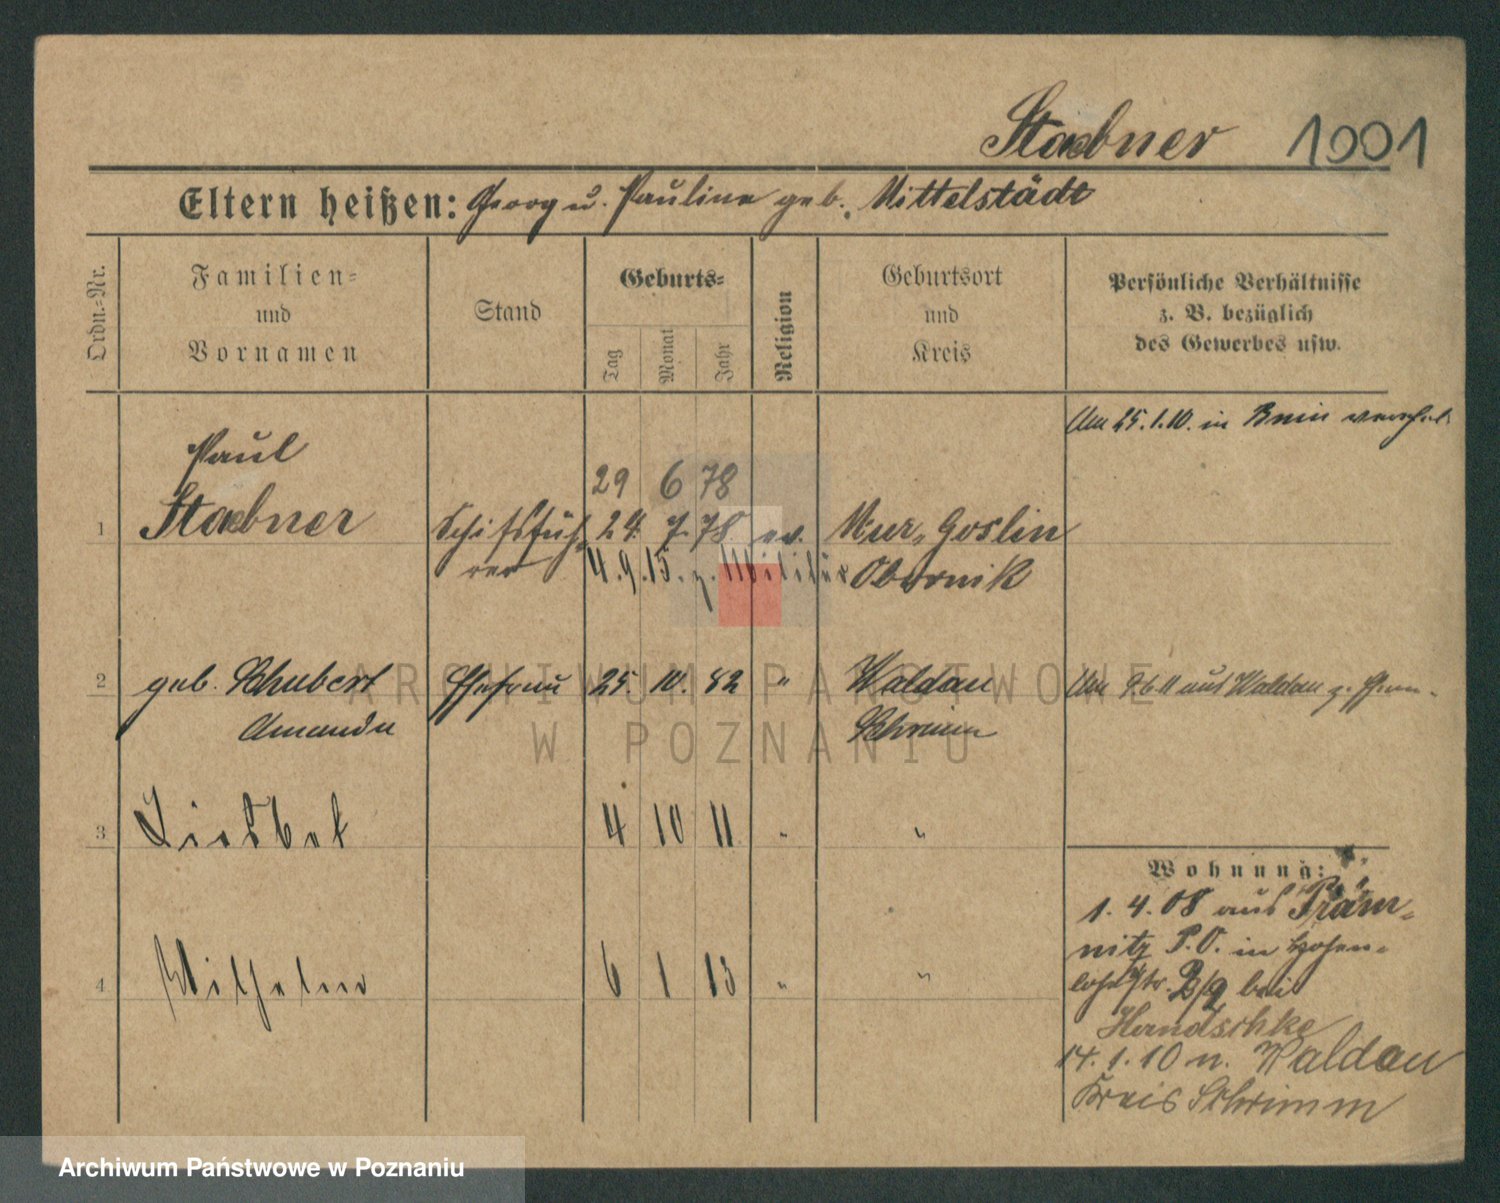 Staebner 1001
Eltern heißen: Georg u. Pauline geb. Mittelstädt
Ordn.-Nr.
Familien-
und
Vornamen
Stand
Geburts-
Tag
Monat
Jahr
Religion
Geburtsort
und
Kreis
Persönliche Verhältnisse
z. B. bezüglich
des Gewerbes usw.
Am 25.1.10. in Bnin
Paul
29 6 78
1 Staebner Schifsfüh- 24. 7. 78. ev. Mur. Goslin
rer 4.9.15. z. Militär Obornik
2 geb. Schubert Ehefrau 25. 10. 82 " Waldau Am 9.6.11 aus Waldau z.
Amanda Schrimm
3 Liesbet 4 10 11 " "
Wohnung:
1.4.08 aus Präm-
nitz P.O. in Hohen-
4 Wilhelm 6 1 13 " "
lohestr. 2/9 bei
Handschke
14.1.10 n. Waldau
Kreis Schrimm
ARCHIWUM PAŃSTWOWE
W POZNANIU
Archiwum Państwowe w Poznaniu